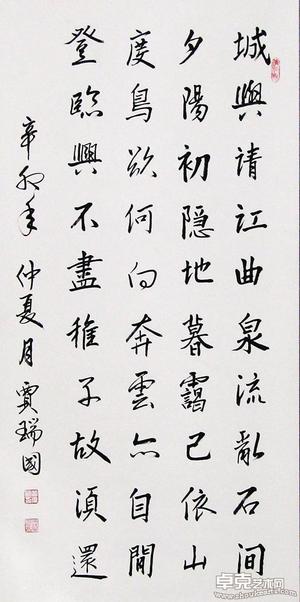 城與清江曲泉流亂石間
夕陽初隱地暮靄已依山
度鳥欲何向奔雲亦自閒
登臨興不盡稚子故須還
辛卯年 仲夏月 賈瑞國
卓克艺术网